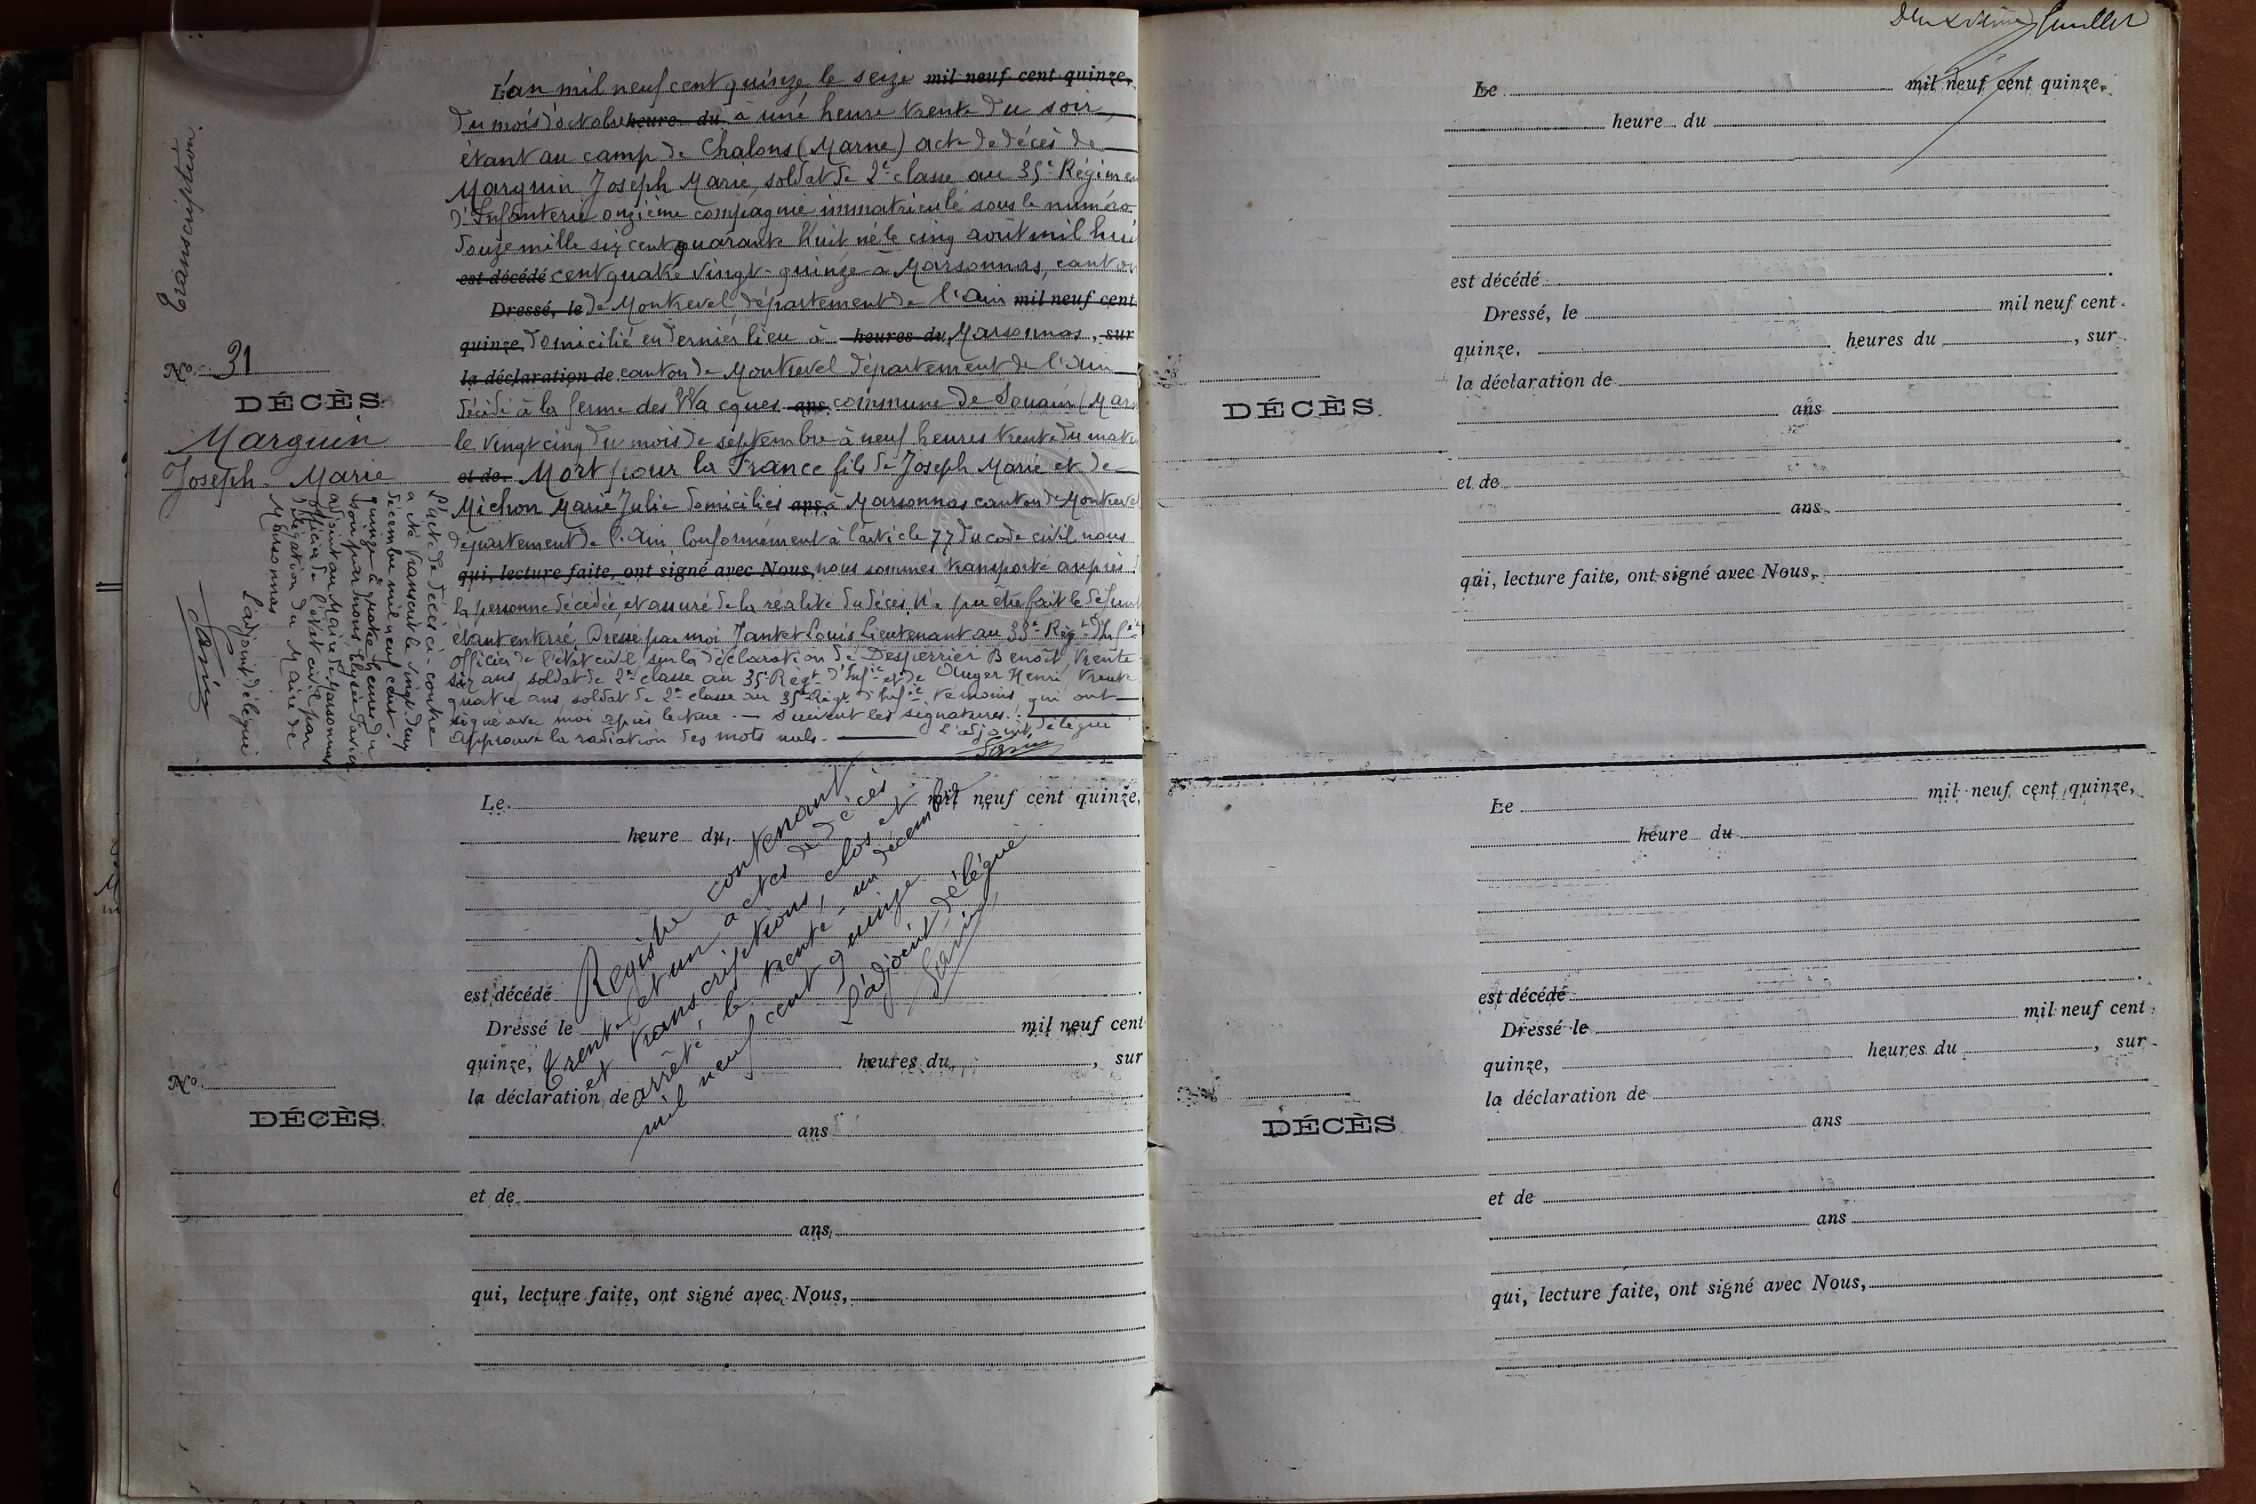 Transcription.
No 31
DÉCÈS
Marguin
Joseph-Marie
L'acte de décès ci-contre
a été transcrit le vingt-deux
décembre mil neuf cent
quinze à quatre heures du
soir par nous, Elysée
adjoint au Maire de Marsonnas
officier de l'état civil par
délégation du Maire de
Marsonnas
L'adjoint délégué
L'an mil neuf cent quinze le seize mil neuf cent quinze,
du mois d'octobre heure du à une heure trente du soir,
étant au camp de Chalons (Marne) acte de décès de
Marguin Joseph Marie, soldat de 2e classe au 35e Régimen
d'Infanterie onzième compagnie immatriculé sous le numéro
douze mille six cent quarante huit né le cinq août mil hui
est décédé cent quatre vingt-quinze à Marsonnas, canton
Dressé, le de Montrevel, département de l'Ain mil neuf cent
quinze, domicilié en dernier lieu à heures du Marsonnas, sur
la déclaration de canton de Montrevel département de l'Ain
décédé à la ferme des Wacques ans commune de Souain (Marn
le vingt cinq du mois de septembre à neuf heures trente du matin
et de Mort pour la France fils de Joseph Marie et de
Michon Marie Julie domiciliés ans à Marsonnas canton de Montrevel
département de l'Ain. Conformément à l'article 77 du code civil nous
qui, lecture faite, ont signé avec Nous, nous sommes transporté auprès d
la personne décédée, et assuré de la réalité du décès. N'a pu être fait le défunt
étant enterré. Dressé par moi Jantet Louis Lieutenant au 35e Régt d'Infie
Officier de l'état civil, sur la déclaration de Desperrier Benoît, trente
six ans, soldat de 2e classe au 35e Régt d'Infie et de Auger Henri trente
quatre ans, soldat de 2e classe au 35e Régt d'Infie témoins qui ont
signé avec moi après lecture. — Suivent les signatures.
Approuvé la radiation des mots nuls. — L'adjoint délégué
No
DÉCÈS
Le mil neuf cent quinze,
heure du
est décédé
Dressé le mil neuf cent
quinze, heures du , sur
la déclaration de
ans
et de
ans
qui, lecture faite, ont signé avec Nous,
Registre contenant
trente et un actes de décès
et transcriptions, clos et
arrêté, le trente-un décembre
mil neuf cent quinze
L'adjoint délégué
Deuxième feuillet
DÉCÈS
Le mil neuf cent quinze,
heure du
est décédé
Dressé, le mil neuf cent
quinze, heures du , sur
la déclaration de
ans
et de
ans
qui, lecture faite, ont signé avec Nous,
DÉCÈS
Le mil neuf cent quinze,
heure du
est décédé
Dressé le mil neuf cent
quinze, heures du , sur
la déclaration de
ans
et de
ans
qui, lecture faite, ont signé avec Nous,